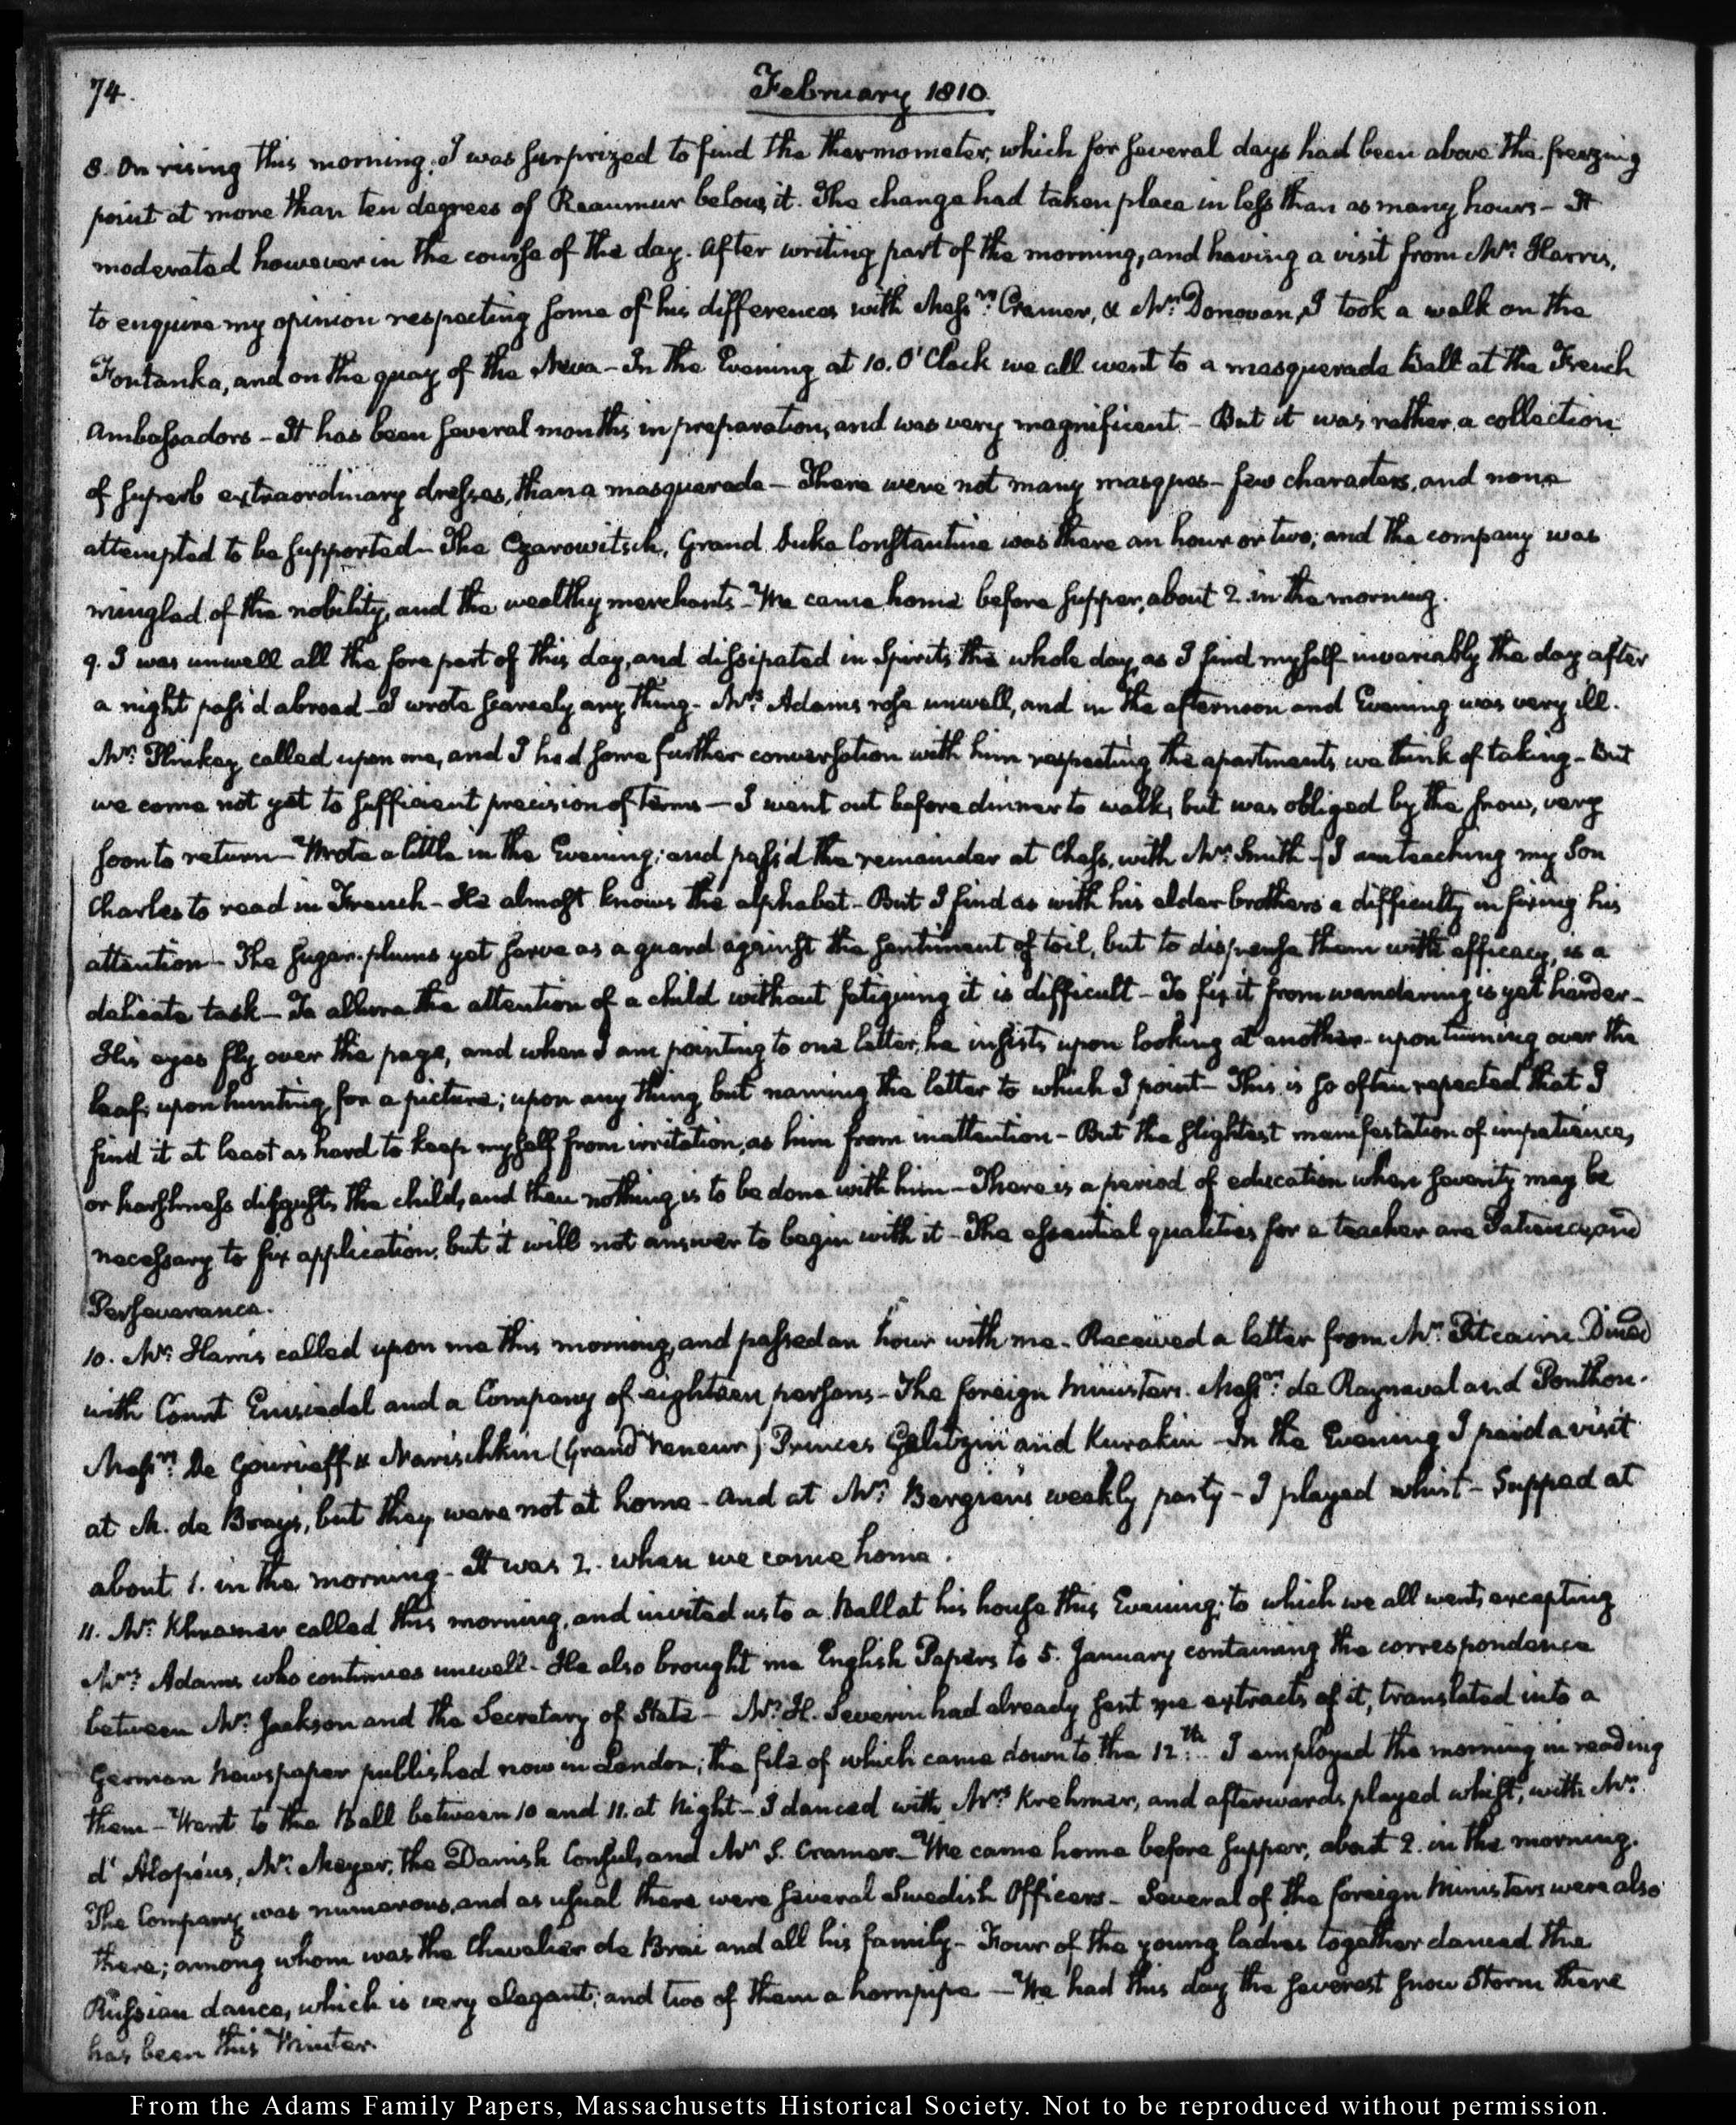 74.
February 1810.
8. On rising this morning, I was surprized to find the thermometer, which for several days had been above the freezing
point at more than ten degrees of Reaumur below it. The change had taken place in less than as many hours - It
moderated however in the course of the day. After writing part of the morning, and having a visit from Mr. Harris,
to enquire my opinion respecting some of his differences with Messrs. Cramer, & Mr. Donovan, I took a walk on the
Fontanka, and on the quay of the Neva - In the Evening at 10. O'Clock we all went to a masquerade Ball at the French
Ambassadors - It has been several months in preparation, and was very magnificent - But it was rather a collection
of superb extraordinary dresses, than a masquerade - There were not many masques - few characters, and none
attempted to be supported - The Czarowitsch, Grand Duke Constantine was there an hour or two; and the company was
mingled of the nobility, and the wealthy merchants - We came home before supper, about 2 in the morning.
9. I was unwell all the fore part of this day, and dissipated in Spirits the whole day, as I find myself invariably the day after
a night pass'd abroad - I wrote scarcely any thing - Mrs. Adams rose unwell, and in the afternoon and Evening was very ill.
Mr. Plinkey called upon me, and I had some further conversation with him respecting the apartments we think of taking - But
we come not yet to sufficient precision of terms - I went out before dinner to walk, but was obliged by the snow, very
soon to return - Wrote a little in the Evening; and pass'd the remainder at Chess, with Mr. Smith - I am teaching my Son
Charles to read in French - He almost knows the alphabet - But I find as with his elder brothers a difficulty in fixing his
attention - The sugar-plums yet serve as a guard against the sentiment of toil, but to dispense them with efficacy, is a
delicate task - To allure the attention of a child without fatiguing it is difficult - To fix it from wandering is yet harder -
His eyes fly over the page, and when I am pointing to one letter, he insists upon looking at another - upon turning over the
leaf; upon hunting for a picture; upon any thing but naming the letter to which I point - This is so often repeated that I
find it at least as hard to keep myself from irritation, as him from inattention - But the slightest manifestation of impatience,
or harshness disgusts the child, and then nothing is to be done with him - There is a period of education when severity may be
necessary to fix application; but it will not answer to begin with it - The essential qualities for a teacher are Patience, and
Perseverance.
10. Mr. Harris called upon me this morning, and passed an hour with me. Received a letter from Mr. Pitcairn. Dined
with Count Einsiedel and a Company of eighteen persons - The foreign Ministers. Messrs. de Rayneval and Ponthon.
Messrs. De Gourieff & Narischkin (Grand Veneur) Princes Galitzin and Kurakin - In the Evening I paid a visit
at M. de Bray's, but they were not at home - and at Mr. Bergien's weekly party - I played whist - Supped at
about 1. in the morning - It was 2. when we came home.
11. Mr. Khremer called this morning, and invited us to a Ball at his house this Evening; to which we all went, excepting
Mrs. Adams who continues unwell - He also brought me English Papers to 5. January containing the correspondence
between Mr. Jackson and the Secretary of State - Mr. H. Severin had already sent me extracts of it, translated into a
German Newspaper published now in London; the file of which came down to the 12th. I employed the morning in reading
them - Went to the Ball between 10 and 11. at Night - I danced with Mrs. Krehmer, and afterwards played whist, with Mr.
d'Alopeus, Mr. Meyer, the Danish Consul, and Mr. S. Cramer - We came home before supper, about 2. in the morning.
The Company was numerous, and as usual there were several Swedish Officers - Several of the foreign Ministers were also
there; among whom was the Chevalier de Brai and all his family - Four of the young ladies together danced the
Russian dance, which is very elegant; and two of them a hornpipe - We had this day the severest snow Storm there
has been this Winter.
From the Adams Family Papers, Massachusetts Historical Society. Not to be reproduced without permission.